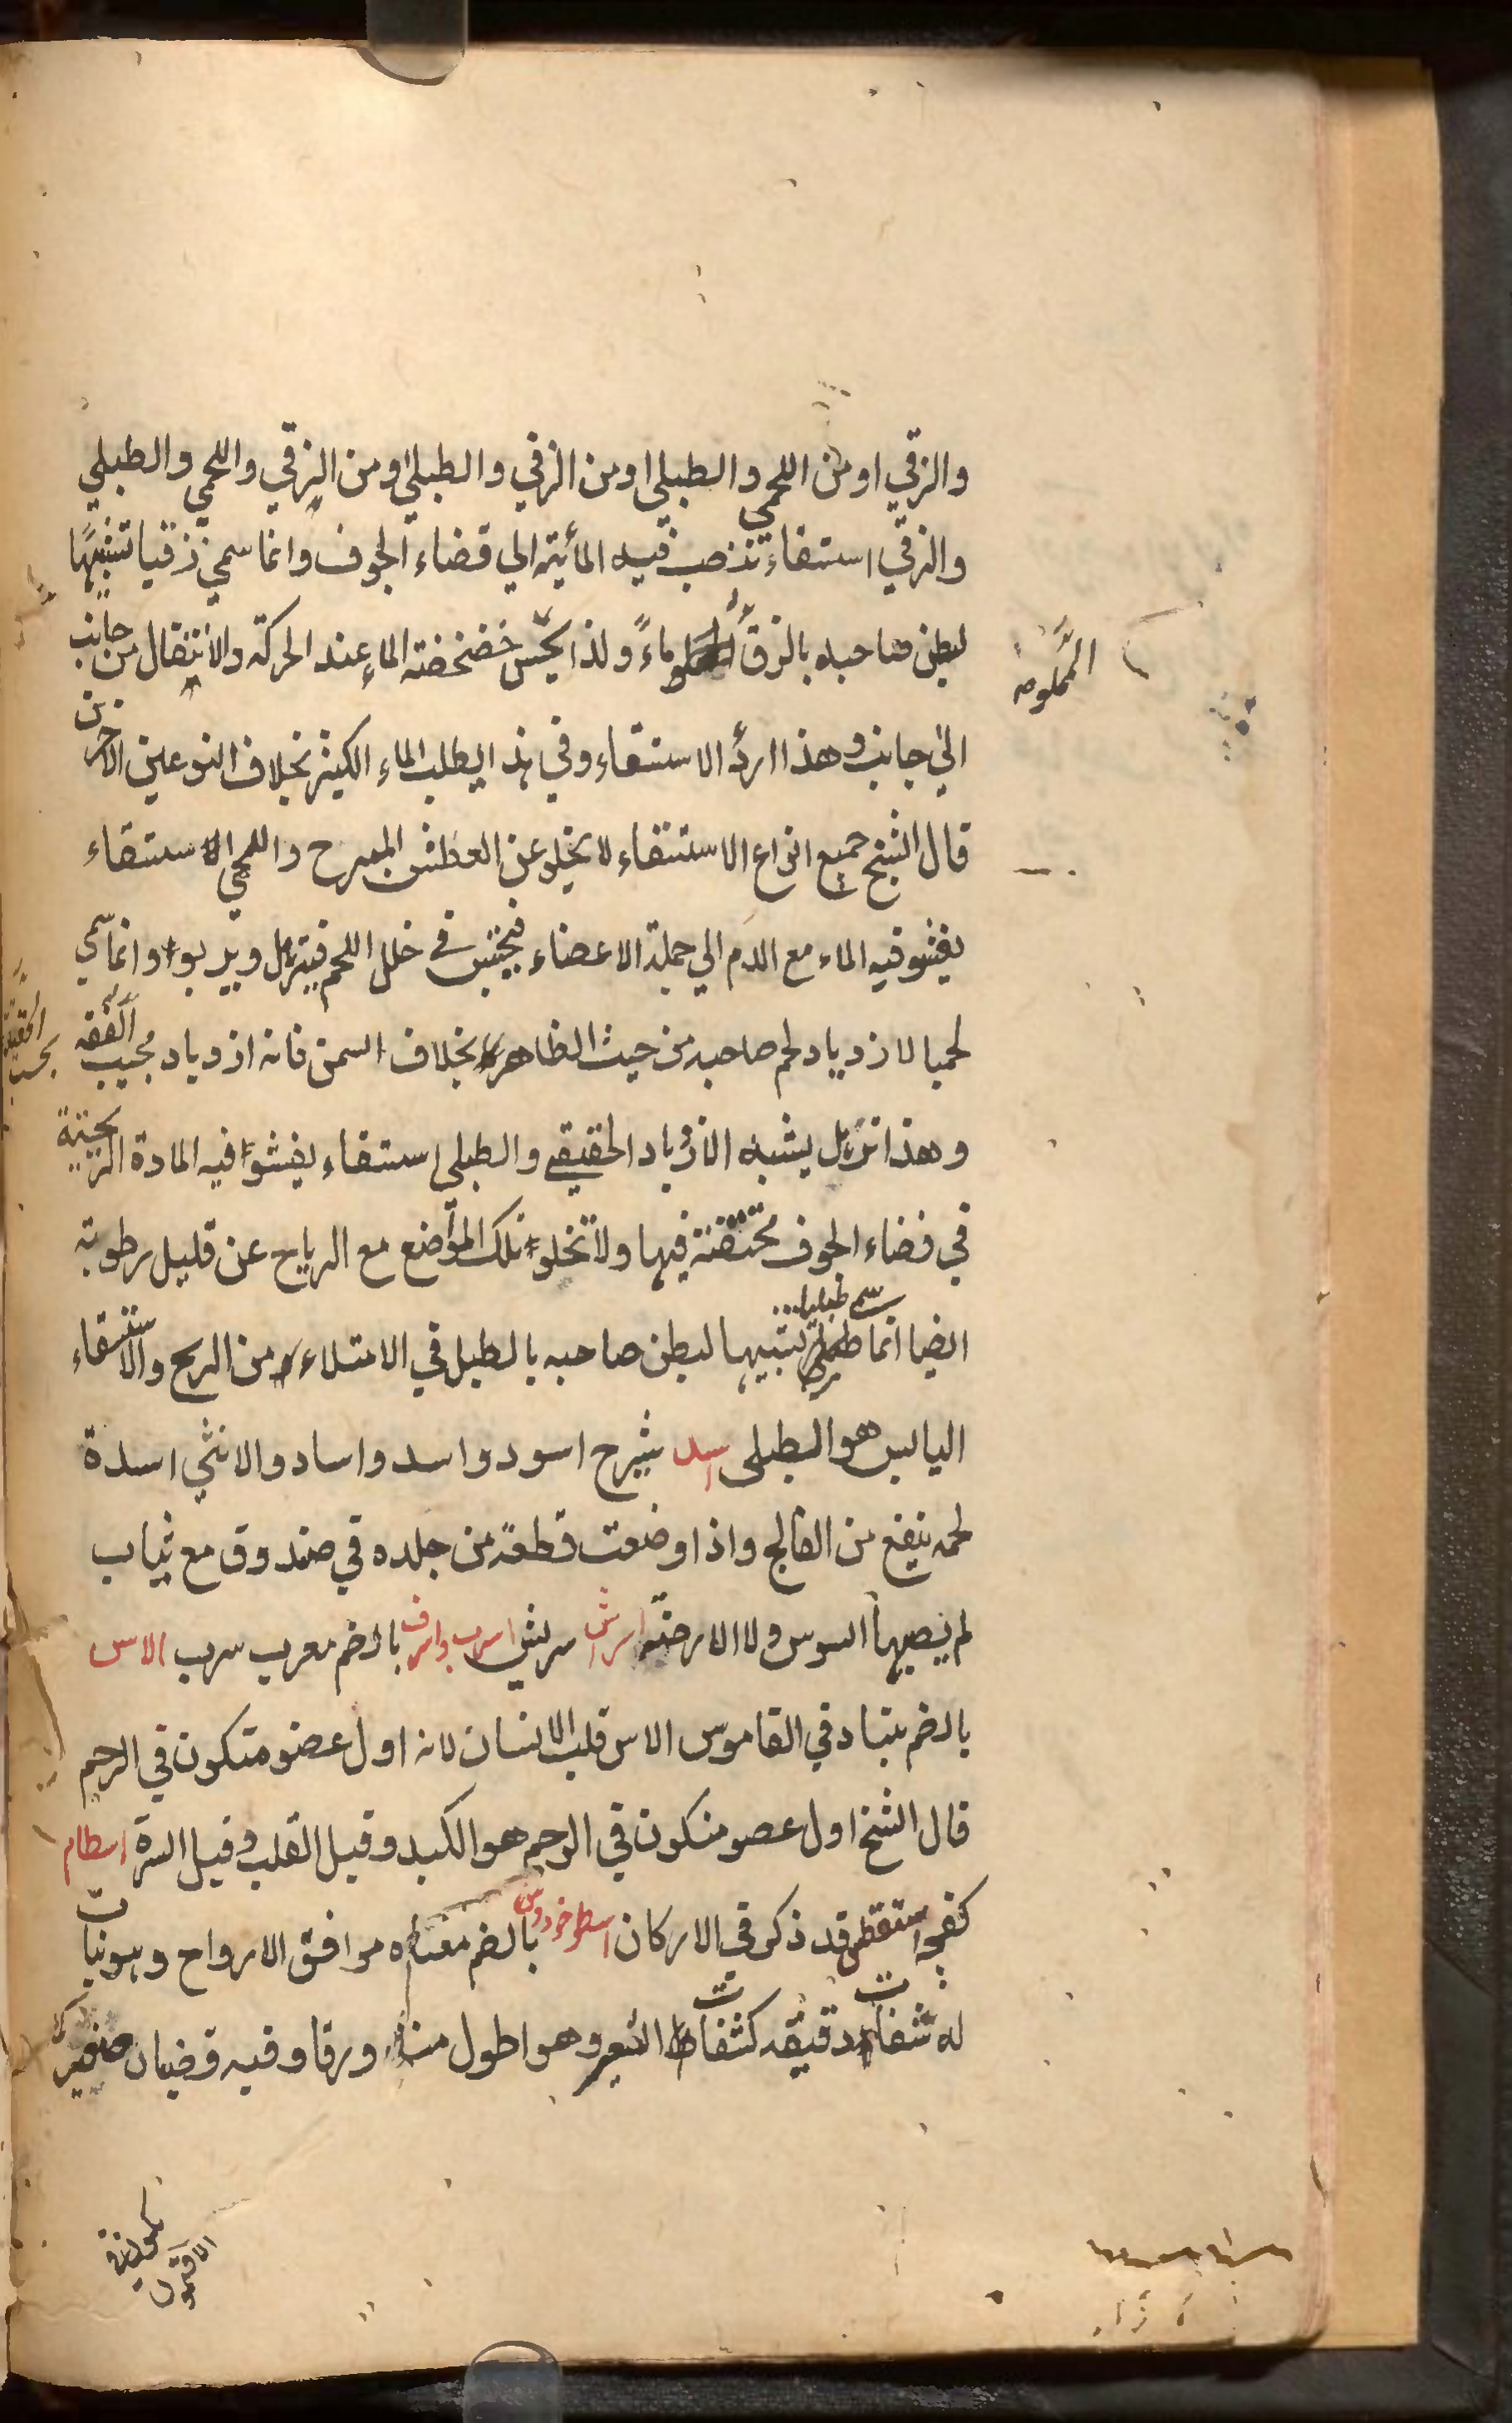 والزقي او من اللحمي والطبلي او من الزقي والطبلي او من الزقي واللحمي والطبلي
والزقي استسقاء تنصب فيه المائية الى فضاء الجوف وانما سمي زقيا تشبيها
لبطن صاحبه بالزق ماءً ولذا يحس خضخضة الماء عند الحركة والانتقال من جانب
المملوء
الى جانب وهذا اردأ الاستسقاء وفي هذا يطلب الماء الكثير بخلاف النوعين الاخرين
قال الشيخ جميع انواع الاستسقاء لا يخلو عن العطش المبرح واللحمي الاستسقاء
يفشو فيه الماء مع الدم الى جملة الاعضاء فيحتبس في خلل اللحم فيترهل ويربو وانما سمي
لحميا لازدياد لحم صاحبه من حيث الظاهر بخلاف السمن فانه ازدياد بحسب
الحقيقة
وهذا ترهل يشبه الازدياد الحقيقي والطبلي استسقاء يفشو فيه المادة الريحية
في فضاء الجوف محتقنة فيها ولا تخلو تلك المواضع مع الرياح عن قليل رطوبة
ايضا انما سمي طبليا تشبيها لبطن صاحبه بالطبل في الامتلاء من الريح والاستسقاء
اليابس هو الطبلي اسد شيرح اسود واسد واساد والانثى اسدة
لحمه ينفع من الفالج واذا وضعت قطعة من جلده في صندوق مع ثياب
لم يصبها السوس ولا الارضة اسراش سريش اسرب واسرف بالضم معرب سرب الاس
بالضم بنياد في القاموس الاس قلب الانسان لانه اول عضو متكون في الرحم
قال الشيخ اول عضو متكون في الرحم هو الكبد وقيل القلب وقيل السرة اسطام
كفچه استقطس قد ذكر في الاركان اسطوخودوس بالضم معناه موافق الارواح وهو نبات
له شفات دقيقة كشفات الشعير وهو اطول منه ورقا وفيه قضبان صغيرة